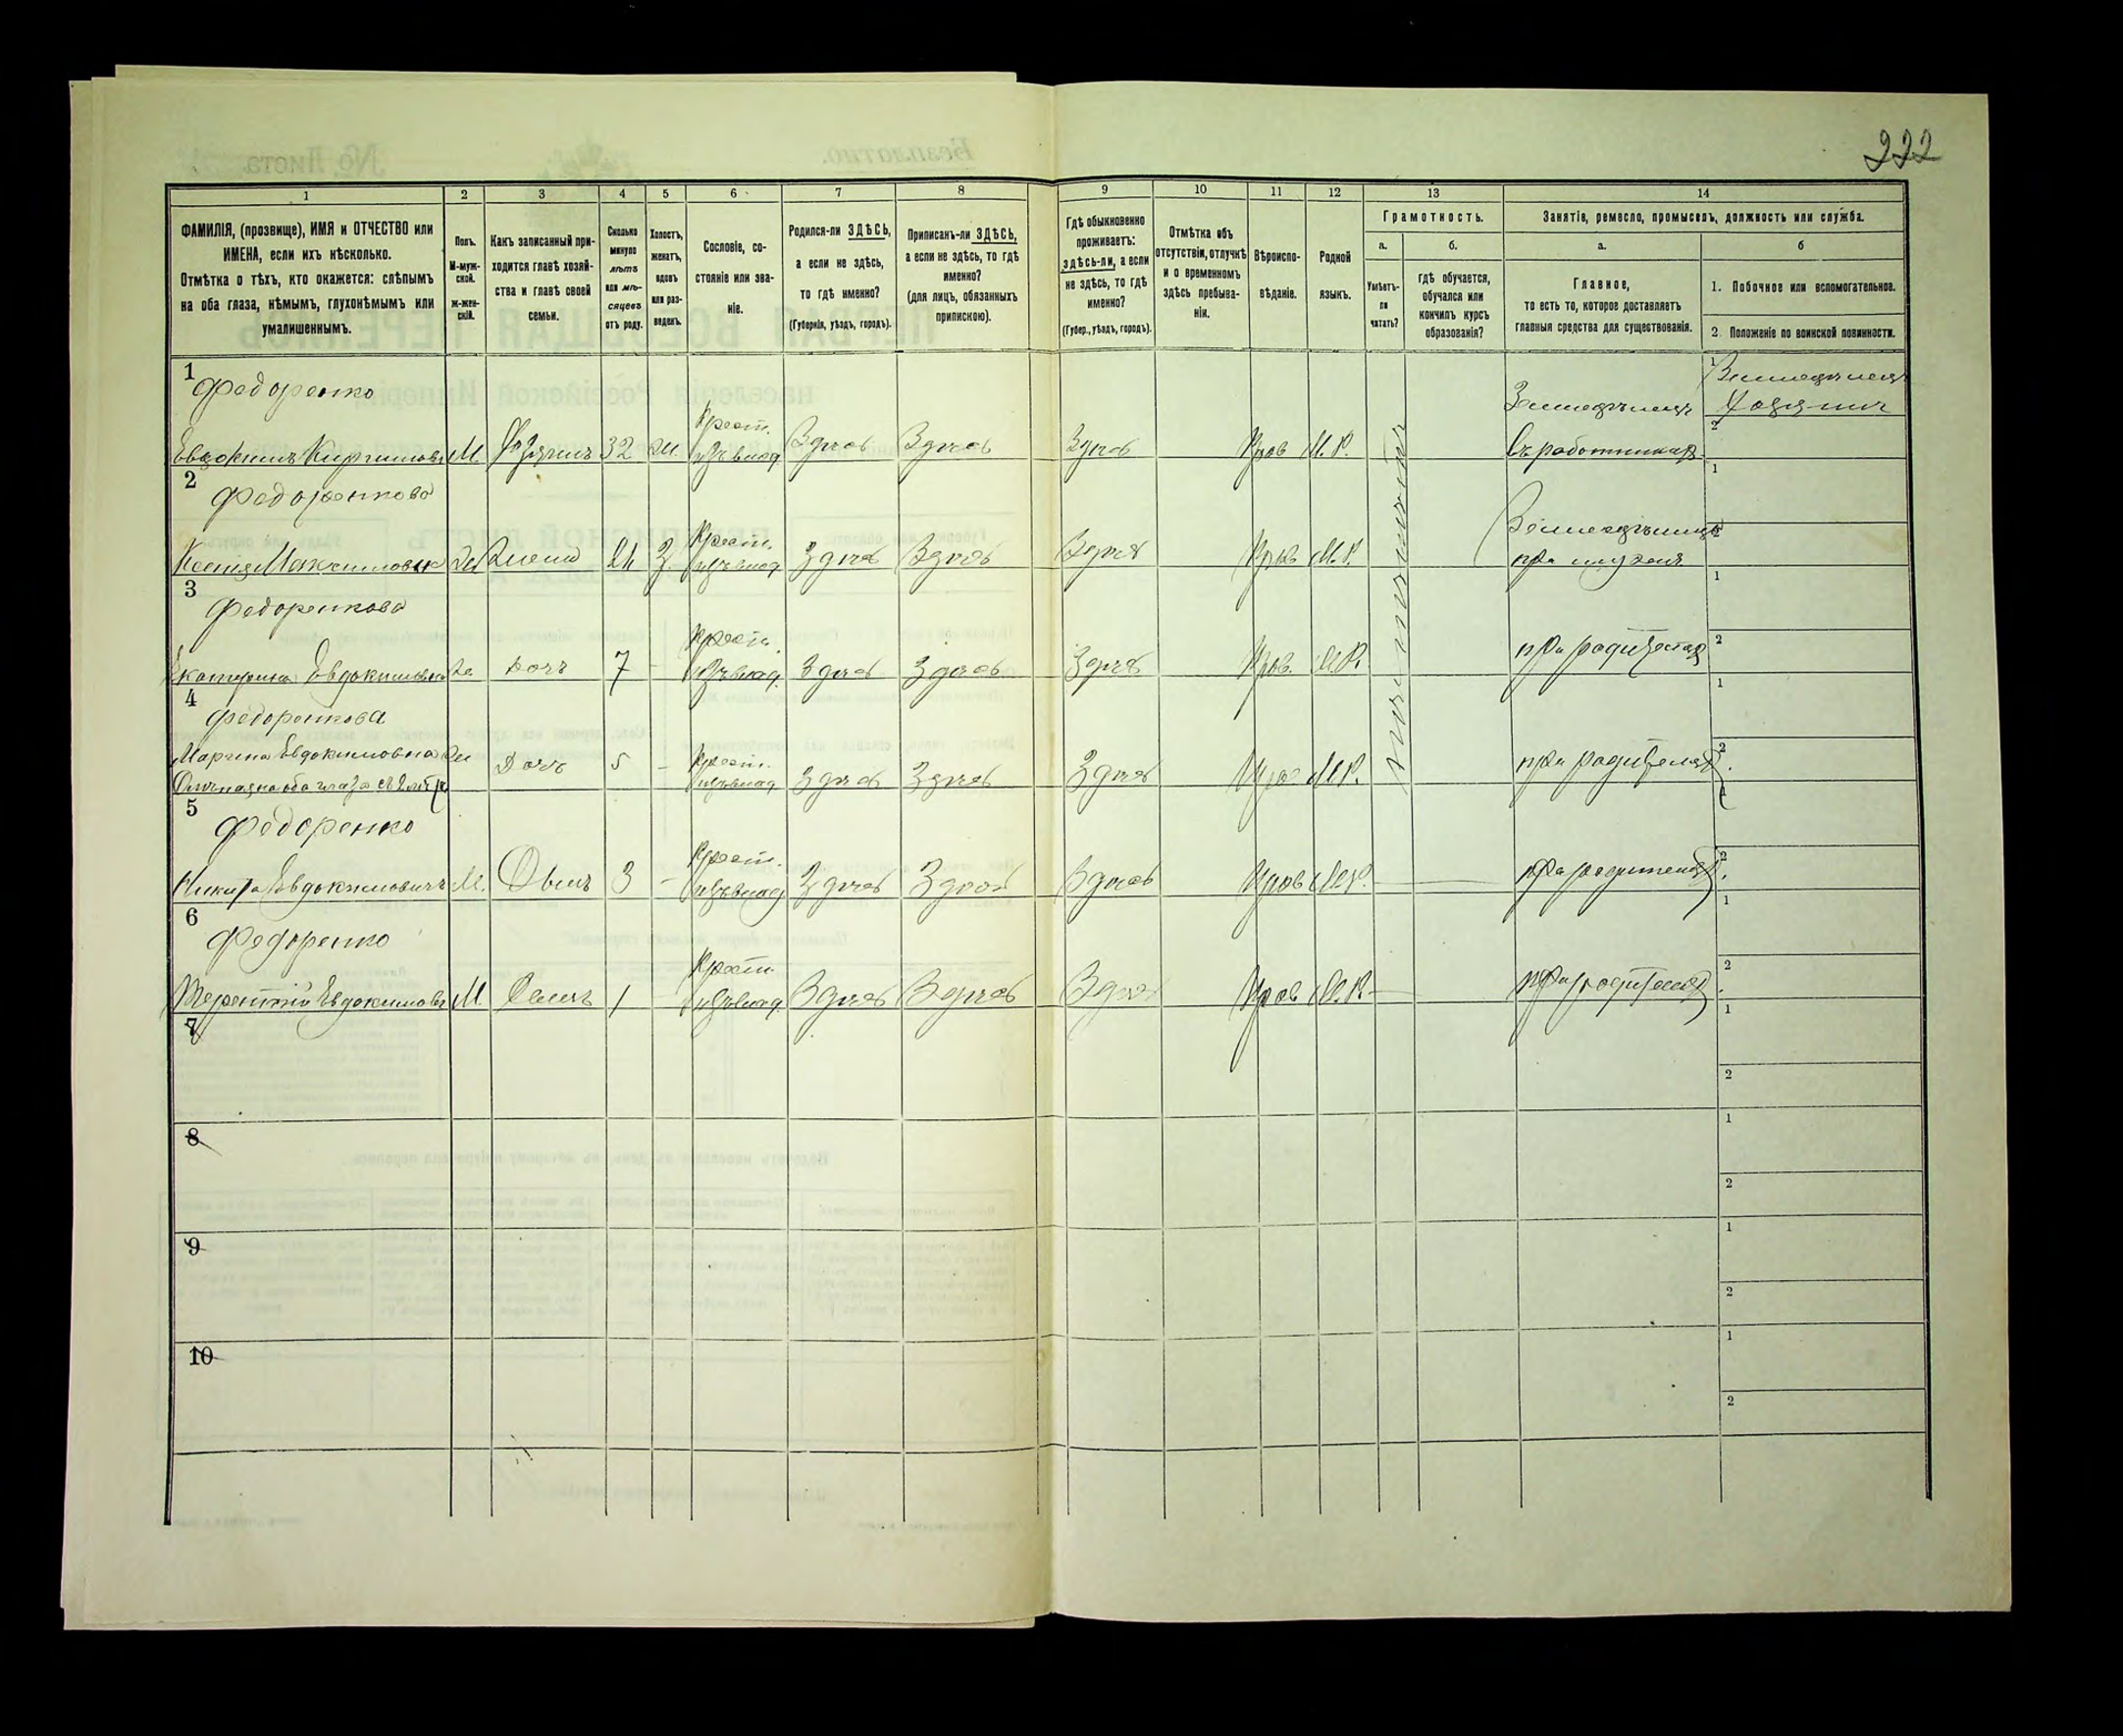 222
1
2
3
4
5
6
7
8
9
10
11
12
13
14
ФАМИЛІЯ, (прозвище), ИМЯ и ОТЧЕСТВО или
ИМЕНА, если ихъ нѣсколько.
Отмѣтка о тѣхъ, кто окажется: слѣпымъ
на оба глаза, нѣмымъ, глухонѣмымъ или
умалишеннымъ.
Полъ.
М-муж-
ской.
ж-жен-
скій.
Какъ записанный при-
ходится главѣ хозяй-
ства и главѣ своей
семьи.
Сколько
минуло
лѣтъ
или мѣ-
сяцевъ
отъ роду.
Холостъ,
женатъ,
вдовъ
или раз-
веденъ.
Сословіе, со-
стояніе или зва-
ніе.
Родился-ли ЗДѢСЬ,
а если не здѣсь,
то гдѣ именно?
(Губернія, уѣздъ, городъ).
Приписанъ-ли ЗДѢСЬ,
а если не здѣсь, то гдѣ
именно?
(для лицъ, обязанныхъ
припискою).
Гдѣ обыкновенно
проживаетъ:
здѣсь-ли, а если
не здѣсь, то гдѣ
именно?
(Губер., уѣздъ, городъ).
Отмѣтка объ
отсутствіи, отлучкѣ
и о временномъ
здѣсь пребыва-
ніи.
Вѣроиспо-
вѣданіе.
Родной
языкъ.
Грамотность.
а.
б.
Умѣетъ-
ли
читать?
Гдѣ обучается,
обучался или
кончилъ курсъ
образованія?
Занятіе, ремесло, промыселъ, должность или служба.
а.
б
Главное,
то есть то, которое доставляетъ
главныя средства для существованія.
1. Побочное или вспомогательное.
2. Положеніе по воинской повинности.
1
Федоренко
М. Хозяинъ 32
Крест.
Здѣсь Здѣсь Здѣсь Прав М. Р.
Земледѣлецъ
1
Хозяинъ
2
2
Федоренкова
Ксенія Жена
Крест.
Здѣсь Здѣсь Здѣсь Прав М. Р.
при мужѣ
1
3
Федоренкова
Екатерина Евдокимовна Дочь 7 -
Крест.
Здѣсь Здѣсь Здѣсь Прав. М.Р.
при родителяхъ
1
2
4
Федоренкова
Марина Евдокимовна Дочь 5 -
Крест.
Здѣсь Здѣсь Здѣсь Прав М.Р.
при родителяхъ
1
2
5
Федоренко
Никита Евдокимовичъ М. Сынъ 3 -
Крест.
Здѣсь Здѣсь Здѣсь Прав М.Р.
при родителяхъ
1
2
6
Федоренко
Терентій М. Сынъ 1
Крест.
Здѣсь Здѣсь Здѣсь Прав М.Р.
при родителяхъ
1
2
7
1
2
8
1
2
9
1
2
10
1
2